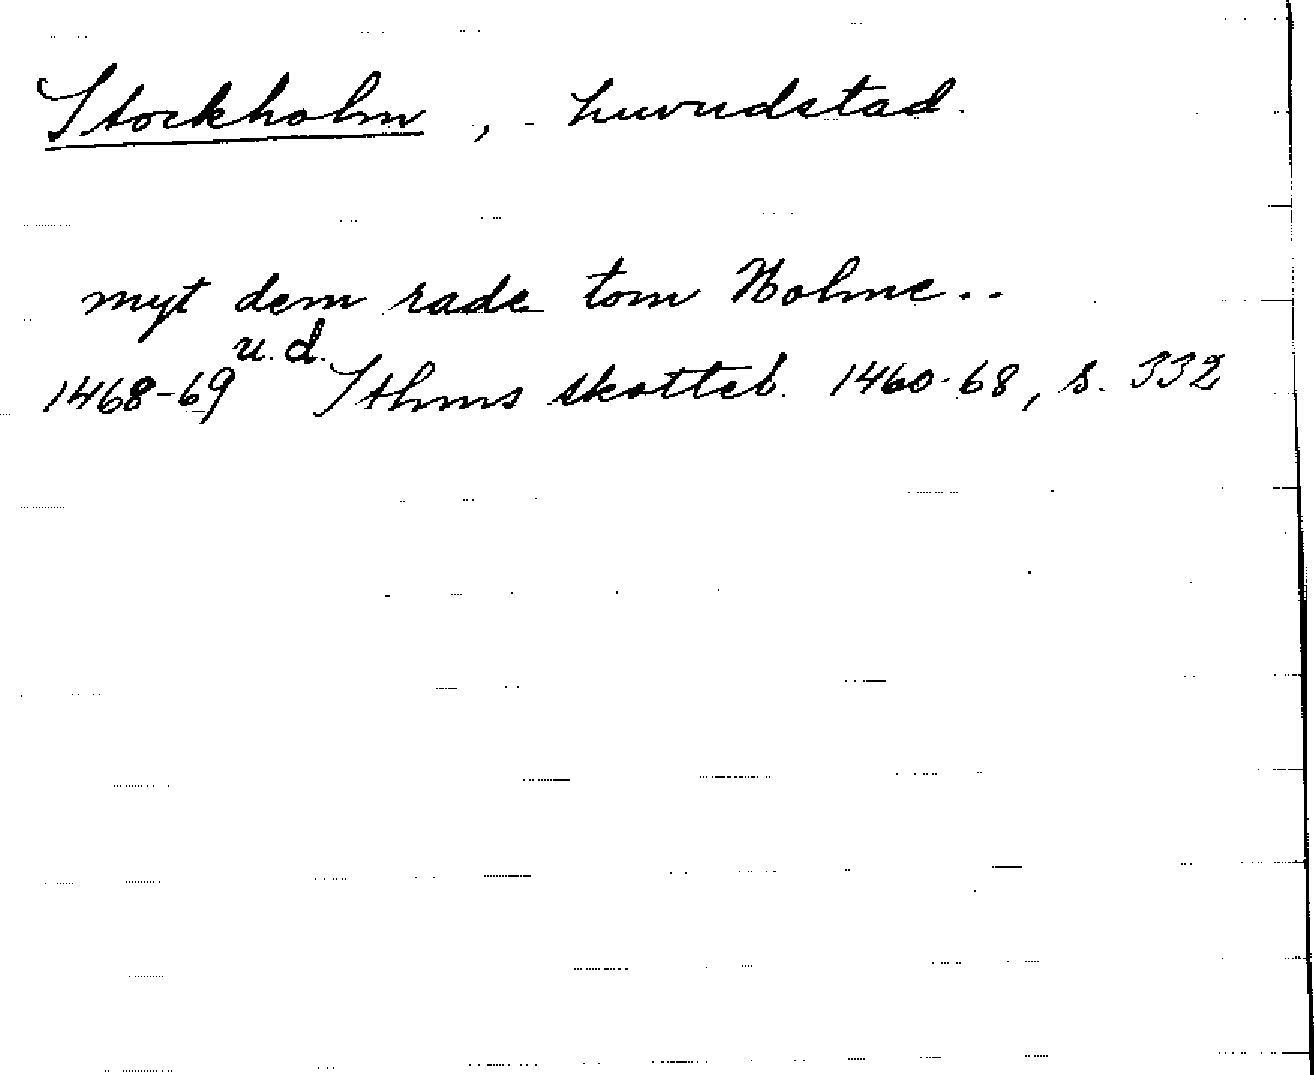 Stockholm, huvudstad.
myt dem rade tom Holme..
1468-69 u.d. Sthms skotteb. 1460-68, s. 332